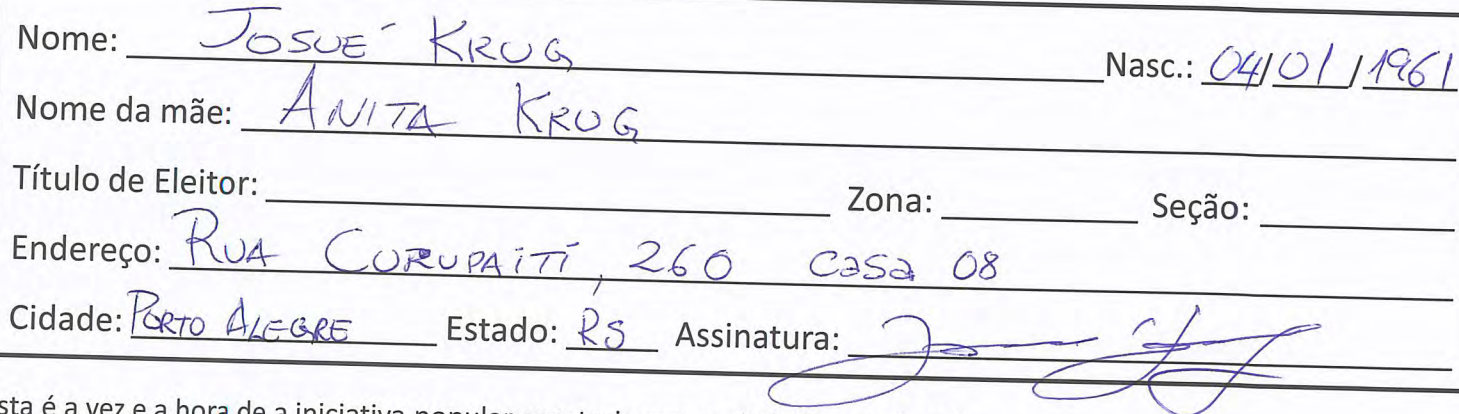 Nome: JOSUÉ KRUG Nasc.: 04/01/1961
Nome da mãe: ANITA KRUG
Título de Eleitor: Zona: Seção:
Endereço: RUA CURUPAITÍ, 260 casa 08
Cidade: PORTO ALEGRE Estado: RS Assinatura:
sta é a vez e a hora de a iniciativa popular